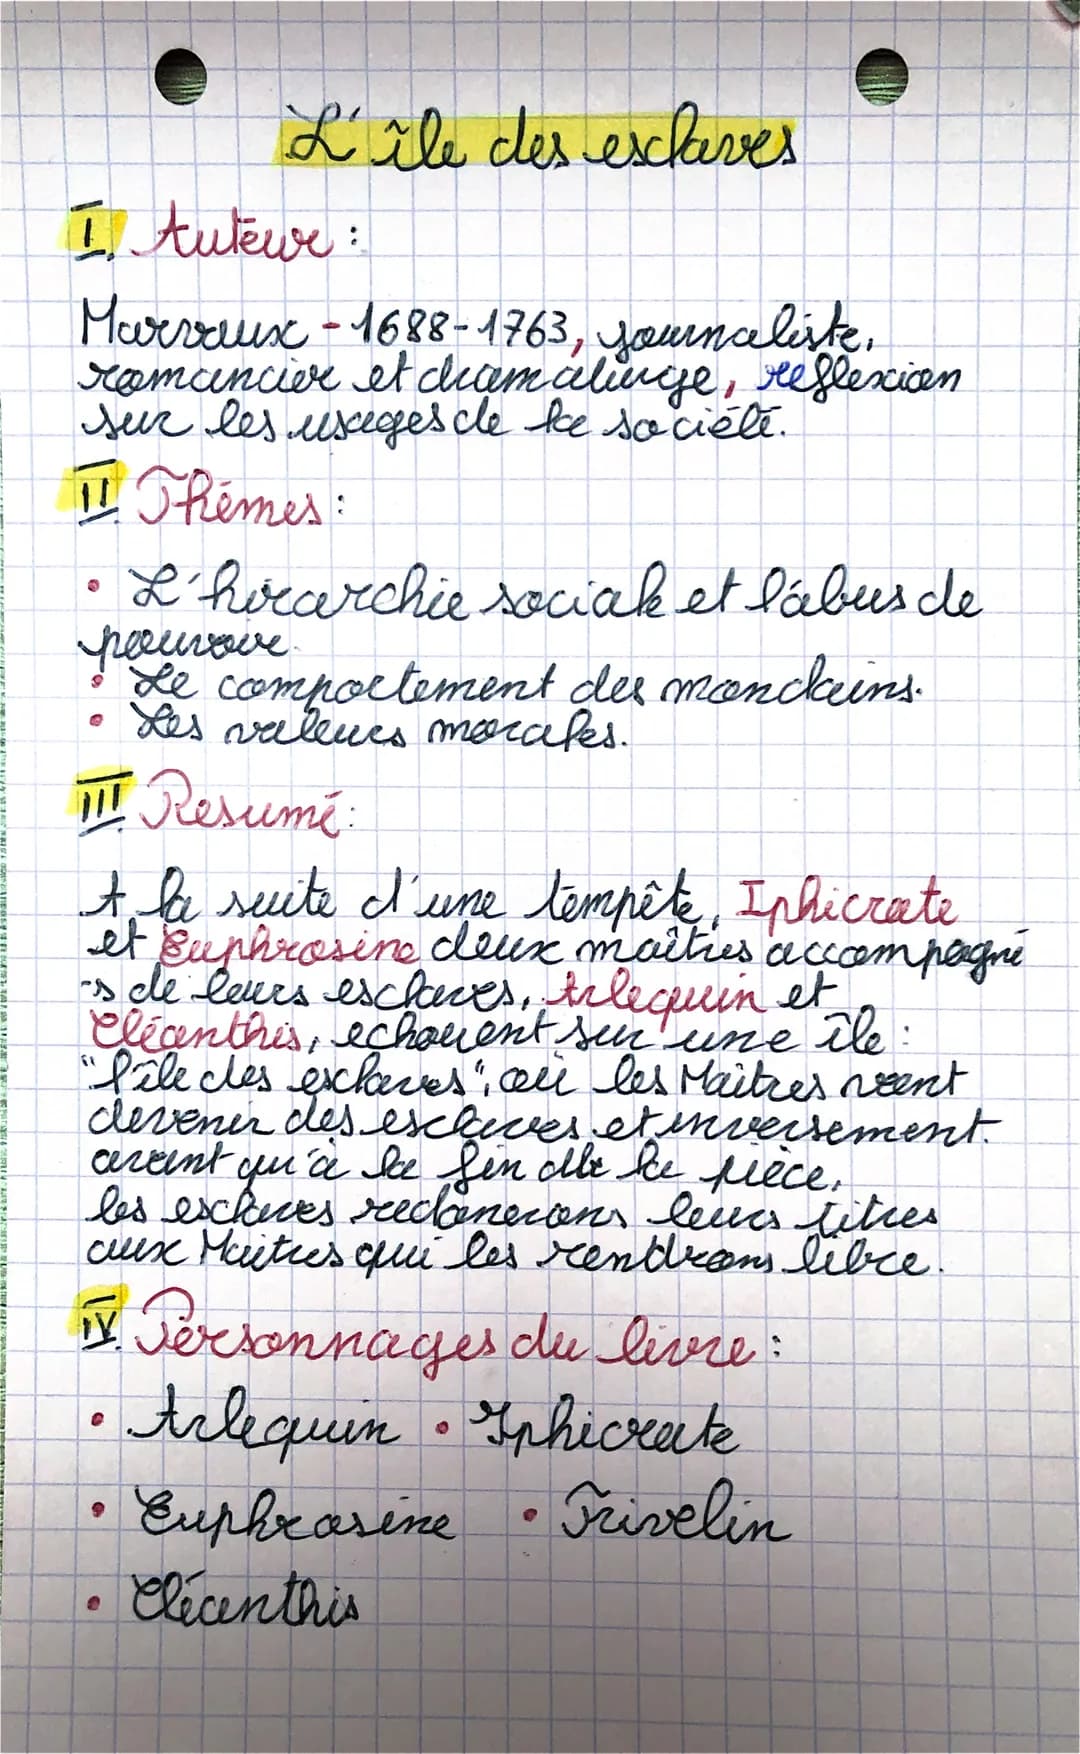 L'île des esclaves
I. Auteur :
Marivaux - 1688-1763, journaliste,
romancier et dramaturge, reflexion
sur les usages de la société.
II Thèmes :
• L'hirarchie sociale et l'abus de
pouvoir.
• Le comportement des mondains.
• Les valeurs morales.
III Resumé :
A la suite d'une tempête, Iphicrate
et Euphrosine deux maîtres accompagné
-s de leurs esclaves, Arlequin et
Cléanthis, echouent sur une île :
"l'île des esclaves", où les Maîtres vont
devenir des esclaves et inversement.
avant qu'à la fin de la pièce,
les esclaves redonerons leurs titres
aux Maitres qui les rendrons libre.
IV Personnages du livre :
• Arlequin • Iphicrate
• Euphrosine • Trivelin
• Cléanthis